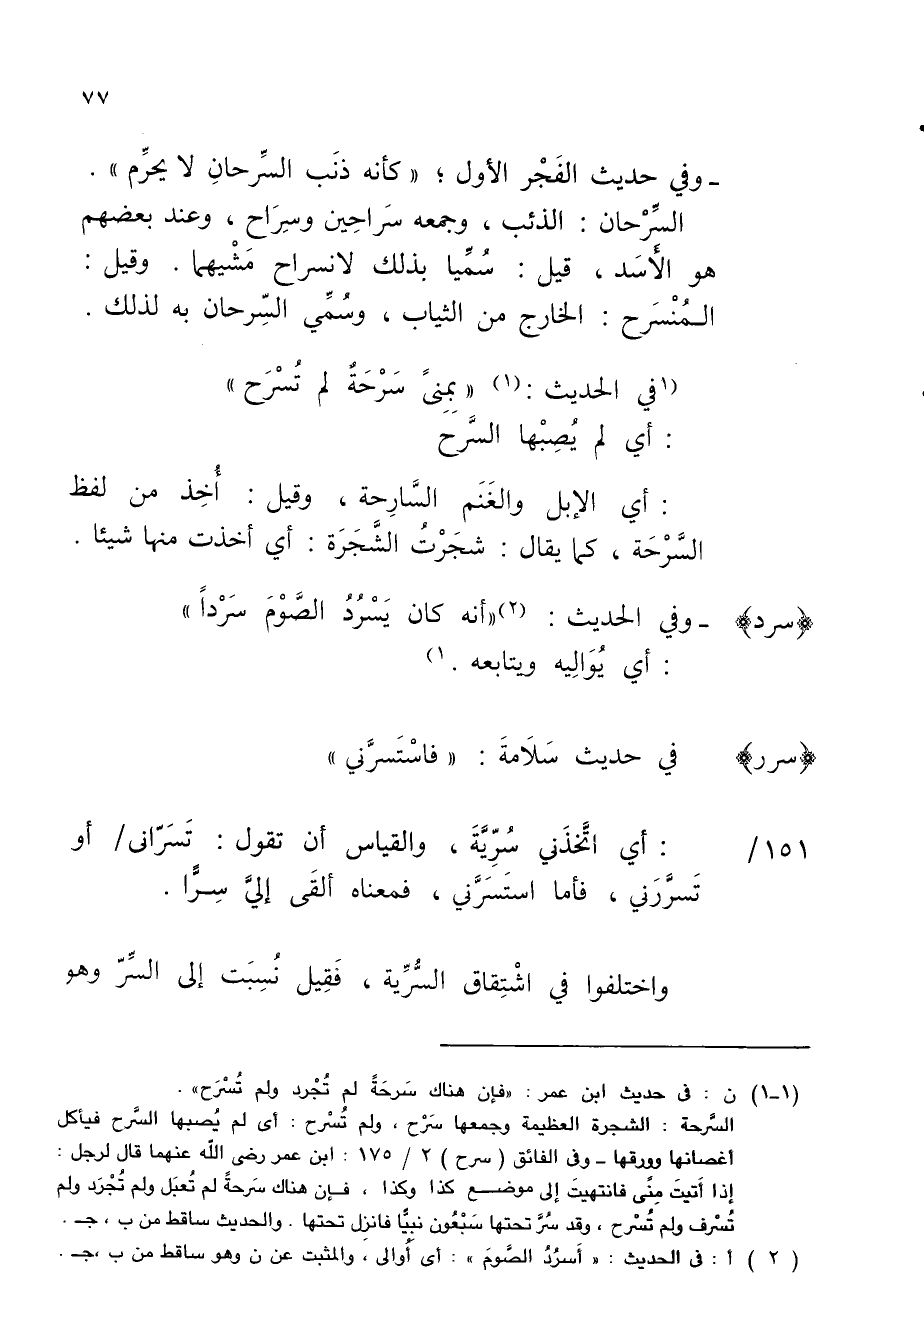 ٧٧
ـ وفي حديث الفَجْر الأول ؛ « كأنه ذنَب السِّرحانِ لا يحرِّم » .
السِّرْحان : الذئب ، وجمعه سَراحين وسِرَاح ، وعند بعضهم
هو الأَسَد ، قيل : سُمِّيا بذلك لانسراح مَشْيهما . وقيل :
المُنْسَرح : الخارج من الثياب ، وسُمِّي السِّرحان به لذلك .
(١في الحديث :(١) « بِمِنىً سَرْحَةٌ لم تُسْرَح »
: أي لم يُصِبْها السَّرح
: أي الإبل والغَنَم السَّارِحة ، وقيل : أُخِذ من لفظ
السَّرْحَة ، كما يقال : شجَرْتُ الشَّجَرَة : أي أخذت منها شيئا .
﴿سرد﴾ ـ وفي الحديث : (٢)«أنه كان يَسْرُدُ الصَّوْمَ سَرْداً »
: أي يُوَالِيه ويتابعه . ١)
﴿سرر﴾ في حديث سَلَامةَ : « فاسْتَسرَّني »
١٥١/ : أي اتَّخذَني سُرِّيَّةَ ، والقياس أن تقول : تَسَرّانى/ أو
تَسرَّرَني ، فأما استَسَرَّني ، فمعناه ألقَى إليَّ سِرًّا .
واختلفوا في اشْتِقاق السُّرِّية ، فَقِيل نُسِبَت إلى السِّرّ وهو
(١-١) ن : فى حديث ابن عمر : «فإن هناك سَرحَةً لم تُجْرد ولم تُسْرَح» .
السَّرحة : الشجرة العظيمة وجمعها سَرْح ، ولم تُسْرح : أى لم يُصبها السَّرح فيأكل
أغصانها وورقها ـ وفى الفائق ( سرح ) ٢ / ١٧٥ : ابن عمر رضى الله عنهما قال لرجل :
إذا أَتيتَ مِنًى فانتهيتَ إلى موضع كذا وكذا ، فإن هناك سَرحةً لم تُعبَل ولم تُجْرَد ولم
تُسْرف ولم تُسْرح ، وقد سُرَّ تحتها سَبْعُون نبيًّا فانزل تحتها . والحديث ساقط من ب ، جـ .
( ٢ ) أ : فى الحديث : « أَسرُدُ الصَّومَ » : أى أُوالى ، والمثبت عن ن وهو ساقط من ب ،جـ .